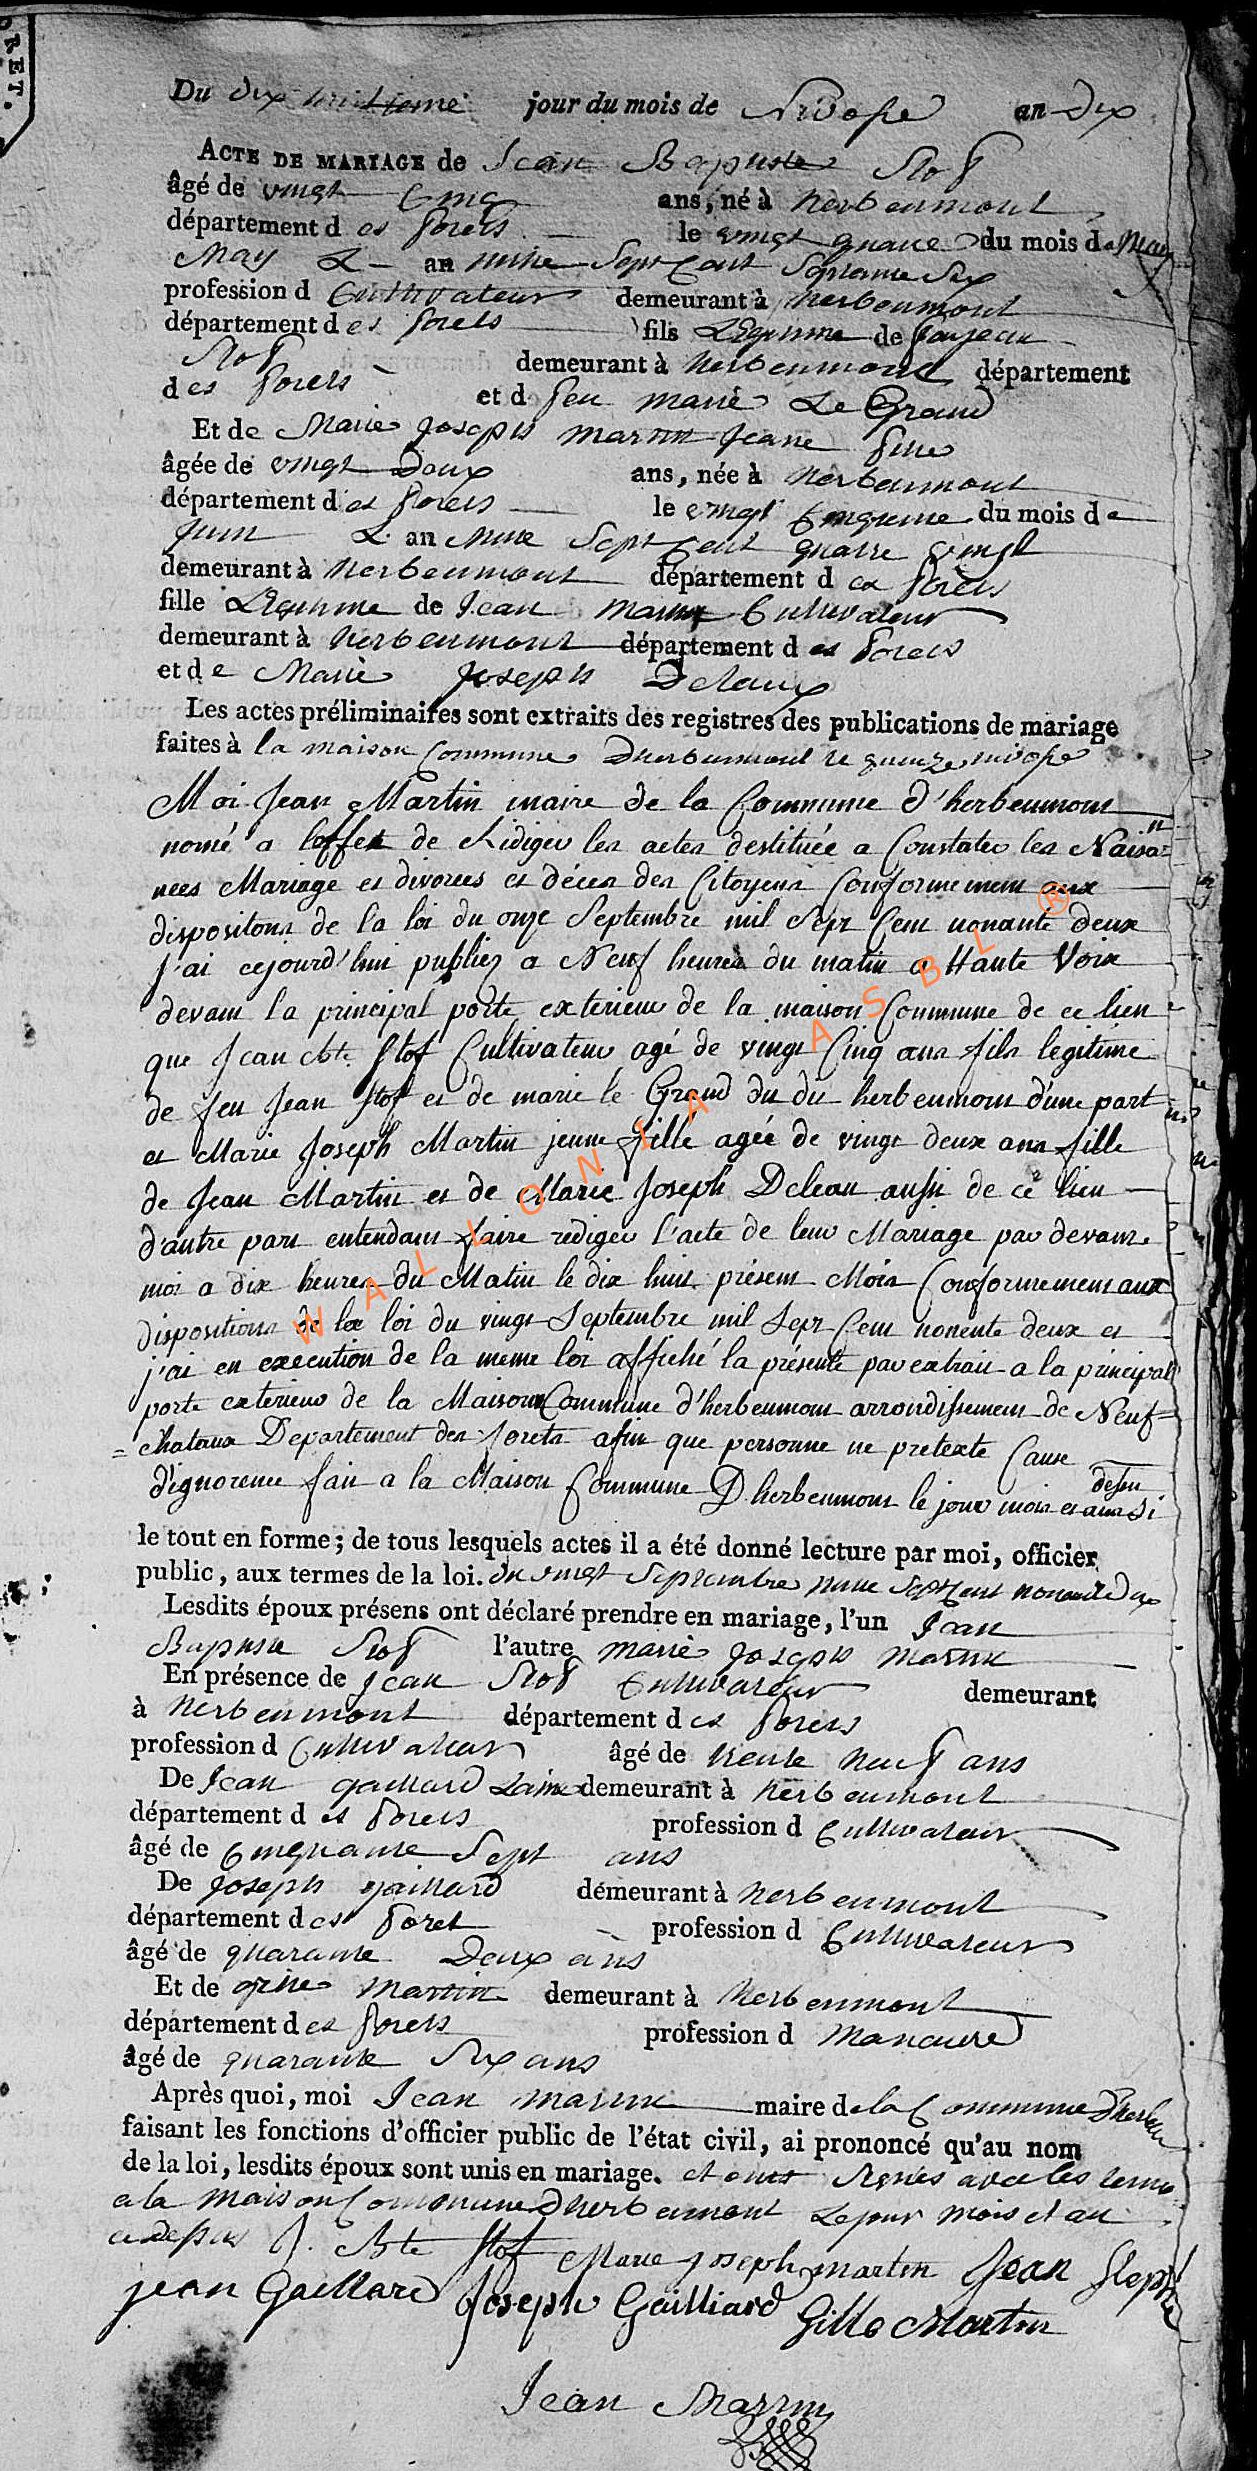 RET.
Du dix huitieme jour du mois de Nivose an dix
ACTE DE MARIAGE de Jean Baptiste Stof
âgé de vingt Cinq ans, né à herbeumont
département des forets le vingt quatre du mois de May
May L an mille Sept Cent Septante Six
profession d Cultivateur demeurant à herbeumont
département des forets fils Légitime de Jean
Stof demeurant à herbeumont département
des forets et d feu marie Le Grand
Et de Marie Joseph martin Jeune fille
âgée de vingt Deux ans, née à herbeumont
département des forets le vingt Cinqieme du mois de
Juin L an Mille Sept Cent quatre vingt
demeurant à herbeumont département des forets
fille Légitime de Jean Martin Cultivateur
demeurant à herbeumont département des forets
et de Marie Joseph Delaux
Les actes préliminaires sont extraits des registres des publications de mariage
faites à la maison Commune Dherbeumont le quinze nivose
Moi Jean Martin maire de la Commune d'herbeumont
nomé a l'effet de Rédiger les actes destituée a Constater les Naisan
nces Mariage et divorces et décés des Citoyens Conformement aux
dispositons de la loi du onze Septembre mil Sept Cent nonante deux
J'ai cejourd'hui publiez a Neuf heures du matin a Haute Voix
devant la principal porte exterieur de la maison Commune de ce lieu
que Jean bte Stof Cultivateur agé de vingt Cinq ans fils legitime
de feu Jean Stof et de marie le Grand du du herbeumont d'une part
et Marie Joseph Martin jeune fille agée de vingt deux ans fille
de Jean Martin et de Marie Joseph Deleau aussi de ce lieu
d'autre part entendant faire rediger l'acte de leur Mariage par devant
moi a dix heures du Matin le dix huit présent Mois Conformement aux
dispositions de la loi du vingt Septembre mil Sept Cent nonente deux et
j'ai en execution de la meme loi affiché la présente par extrait a la principal
porte exterieur de la Maison Commune d'herbeumont arrondissement de Neuf=
=chateaux Departement des forets afin que personne ne pretexte Cause
d'ignorence fait a la Maison Commune D'herbeumont le jour mois et an si
dessu
le tout en forme; de tous lesquels actes il a été donné lecture par moi, officier
public, aux termes de la loi. du vingt Septembre mille Sept Cent nonante Deux
Lesdits époux présens ont déclaré prendre en mariage, l'un Jean
Baptiste Stof l'autre marie Joseph Martin
En présence de Jean Stof Cultivateur demeurant
à herbeumont département des forets
profession d Cultivateur âgé de trente neuf ans
De Jean gaillard Lainé demeurant à herbeumont
département des forets profession d Cultivateur
âgé de Cinquante Sept ans
De Joseph gaillard demeurant à herbeumont
département des foret profession d Cultivateur
âgé de quarante Deux ans
Et de gille Martin demeurant à herbeumont
département des forets profession d Manouvre
âgé de quarante Six ans
Après quoi, moi Jean Martin maire de la Commune Dherbeu
faisant les fonctions d'officier public de l'état civil, ai prononcé qu'au nom
de la loi, lesdits époux sont unis en mariage. et ont Signés avec les temo
a la Maison Commune Dherbeumont Le jour mois et an
cidessus J. Bte Stof Marie joseph martin Jean
jean Gaillard Joseph Gailliard Gille Martin
Jean Martin
WALLONIA ASBL ®